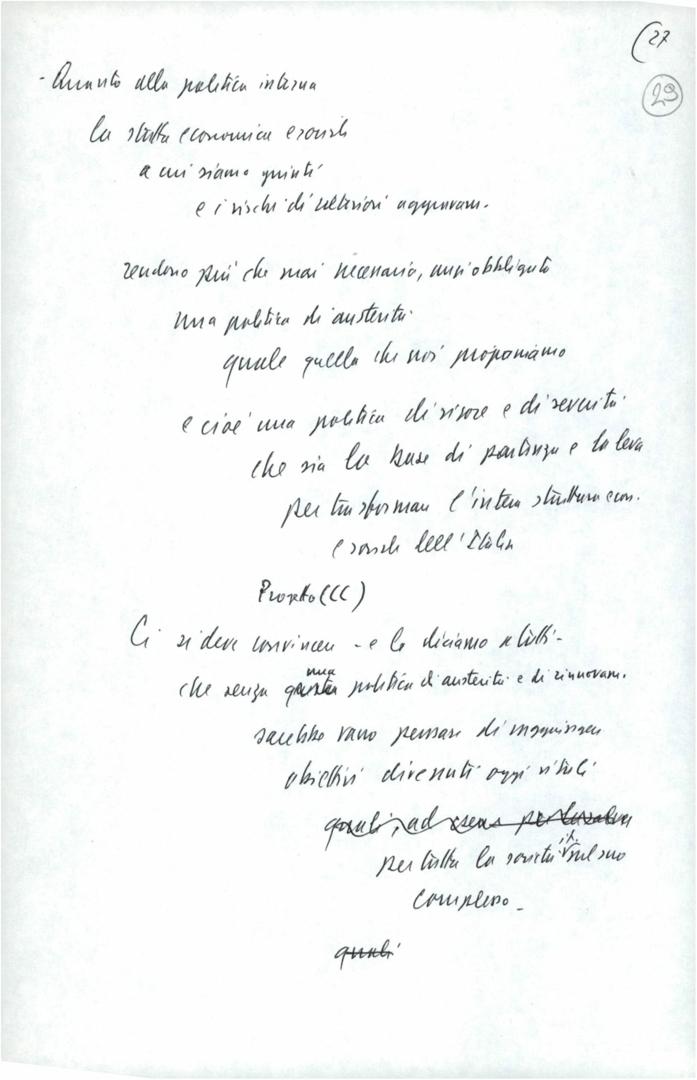 (27
29
- Quanto alla politica interna
la stretta economica e sociale
a cui siamo giunti
e i rischi di ulteriori aggravam.
rendono più che mai necessaria, anzi obbligata
una politica di austerità
quale quella che noi proponiamo
e cioè una politica di rigore e di severità
che sia la base di partenza e la leva
per trasformare l'intera struttura econ.
e sociale dell'Italia
Progetto (CC)
Ci si deve convincere - e lo diciamo a tutti -
una
che senza questa politica di austerità e di rinnovam.
sarebbe vano pensare di raggiungere
obiettivi divenuti oggi vitali
quali, ad esem. per
it.
per tutta la società nel suo
complesso -
quali